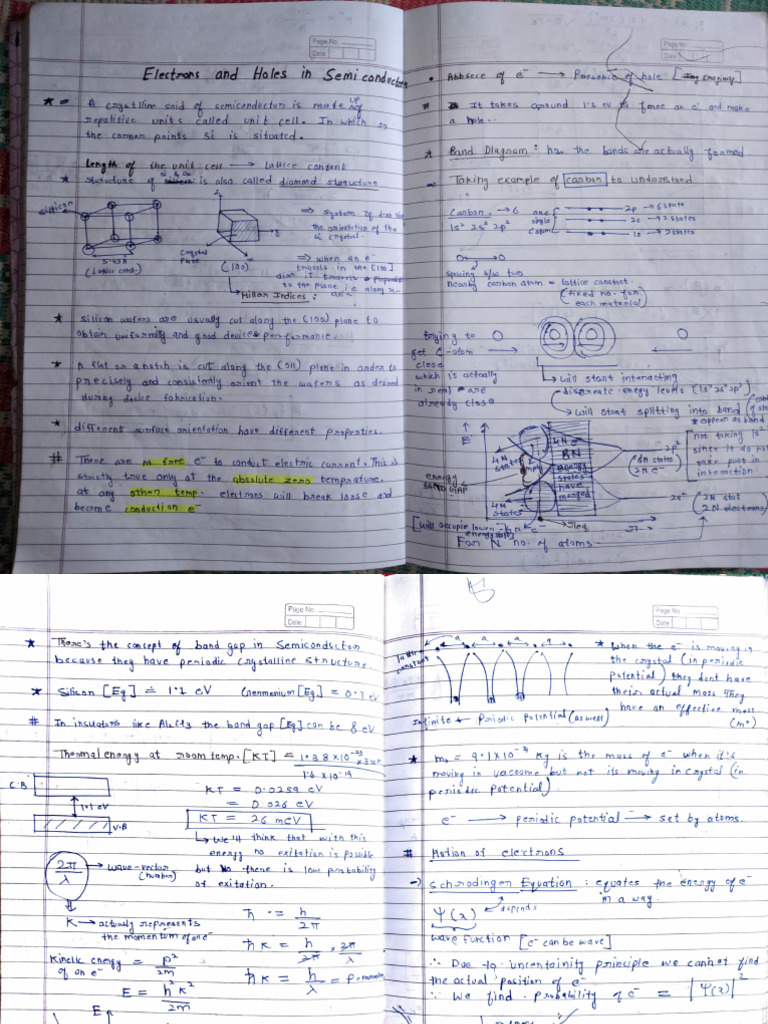 Page No.
Date
Electrons and Holes in Semiconductors
A crystalline soid of semiconductor is made up of
repetitive units called unit cell. In which is
the corner points Si is situated.
Length of the unit cell → Lattice constant
structure of is also called diamond structure
silicon
5.43 Å
(Lattice const.)
Crystal Plane
(100)
⇒ system of
the orientation of the
Si crystal.
⇒ when an e-
travels in the [100]
to the plane i.e along x-
axis
Millar Indices:
silicon wafers are usually cut along the (100) plane to
obtain uniformity and good device performance.
A flat or a notch is cut along the (011) plane in order to
precisely and consistently orient the wafers as desired
during device fabrication.
different surface orientation have different properties.
# There are no free e- to conduct electric current. This is
strictly true only at the absolute zero temprature.
at any other temp. electrons will break loose and
become conduction e-
Page No.
Date
Absence of e- → Presence of hole
# It takes around 1.1 ev to force an and make
a hole..
Band Diagram: how the bands are actually formed
Taking example of carbon to understand
Carbon → 6
1s² 2s² 2p²
one single C atom
2p → 6 state
2s → 2 states
1s → 2 states
spacing b/w two
nearby carbon atom = lattice constant.
(fixed no. for each material)
trying to
get C-atom
close
which is actually
in real are
already close
→ will start interacting
discreate energy levels (1s² 2s² 2p²)
→ will start splitting into band
appear as band
E
4N states
empty
4N e-
8N
energy states have merged
energy BAND GAP
4N states
2p²
(6N states 2N e-)
not taking 1s²
since it do not
take part in
interaction
2s²
(2N stat 2N electrons)
[will occupie lower energy state]
4N e-
req
For N no. of atoms
Page No.
Date
There's the concept of band gap in Semiconductor
because they have periodic crystalline structure.
Silicon [Eg] = 1.1 eV
[Eg] = 0.7 eV
# In insulators like the band gap [Eg] can be 8 eV
Thermal energy at room temp. [KT] = 1.38 x 10⁻²³ x 300
1.6 x 10⁻¹⁹
KT = 0.0259 eV
= 0.026 eV
KT = 26 meV
C.B
1.1 eV
V.B
→ We'll think that with this
energy no exitation is possible
but No there is low probability
of exitation.
2π/λ → wave-vector (number)
K → actually represents
the momentum of an e-
Kinetic energy of an e- = p²/2m
E = ħ²K²/2m
E
ħ = h/2π
ħK = h/2π · 2π/λ
ħK = h/λ = P
Page No.
Date
lattice constant
a a a a
Infinite ← Periodic potential (as well)
When the e- is moving in
the crystal (in periodic
potential) they dont have
their actual mass They
have an effective mass
(m*)
m₀ = Kg is the mass of e- when it's
moving in vaccume but not its moving in crystal (in
periodic potential)
e- → periodic potential → set by atoms.
# Motion of electrons
→ Schrodinger Equation: equates the energy of e-
in a way.
Ψ(x) depends
wave function [e- can be wave]
∴ Due to uncertainity principle we cannot find
the actual position of e-
∴ We find probability of e- = |Ψ(x)|²